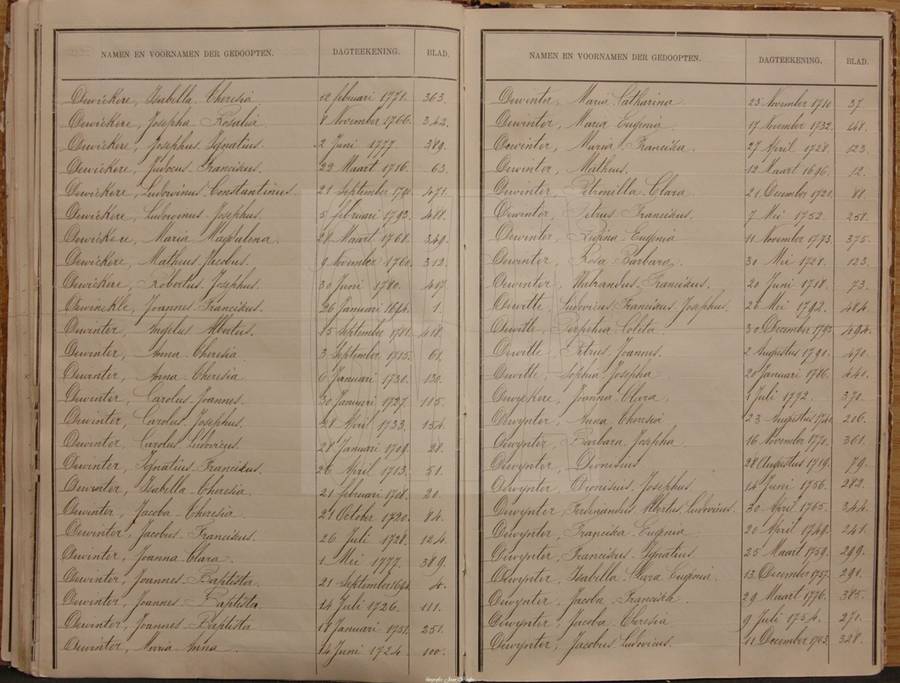 NAMEN EN VOORNAMEN DER GEDOOPTEN. DAGTEEKENING. BLAD.
Dewickere, Isabella Theresia 12 februari 1771. 363.
Dewickere, Josepha Rosalia 8 November 1766. 342.
Dewickere, Josephus Ignatius 2 Juni 1777. 389.
Dewickere, Judocus Franciscus. 22 Maart 1716. 63.
Dewickere, Ludovicus Constantinus 21 September 471.
Dewickere, Ludovicus Josephus. 5 februari 1792. 481.
Dewickere, Maria Magdalena. 28 Maart 1768. 349.
Dewickere, Matheus Jacobus. 9 November 1760. 312.
Dewickere, Robertus Josephus. 30 Juni 1780. 417.
Dewinckle, Joannes Franciscus. 26 Januari 1694. 1.
Dewinter, Angelus Albertus. 25 September 1781. 418.
Dewinter, Anna Theresia. 3 September 1715. 61.
Dewinter, Anna Theresia 6 Januari 1730. 130.
Dewinter, Carolus Joannes. 30 Januari 1727. 115.
Dewinter, Carolus Josephus. 28 April 1733. 154.
Dewinter, Carolus Ludovicus 28 Januari 1709. 28.
Dewinter, Ignatius Franciscus. 26 April 1713. 51.
Dewinter, Isabella Theresia 21 februari 1708. 20.
Dewinter, Jacoba Theresia 21 October 1720. 84.
Dewinter, Jacobus Franciscus. 26 Juli 1728. 124.
Dewinter, Joanna Clara 1 Mei 1777. 389.
Dewinter, Joannes Baptista 21 September 4.
Dewinter, Joannes Baptista 14 Juli 1726. 111.
Dewinter, Joannes Baptista 17 Januari 1751. 251.
Dewinter, Maria Anna 14 Juni 1724. 100.
NAMEN EN VOORNAMEN DER GEDOOPTEN. DAGTEEKENING. BLAD.
Dewinter, Maria Catharina 23 November 1710 37.
Dewinter, Maria Eugenia 17 November 1732. 148.
Dewinter, Maria Francisca. 27 April 1728. 123.
Dewinter, Matheus. 12 Maart 1696. 12.
Dewinter, Petronilla Clara 21 December 1721. 88.
Dewinter, Petrus Franciscus. 7 Mei 1752. 251.
Dewinter, Regina Eugenia 11 November 1773. 375.
Dewinter, Rosa Barbara. 30 Mei 1728. 123.
Dewinter, Franciscus. 20 Juni 1718. 73.
Dewitte, Ludovicus Franciscus Josephus. 26 Mei 1792. 484.
Dewitte, Colita 30 December 1793. 494.
Dewitte, Petrus Joannes. 2 Augustus 1790. 470.
Dewitte, Sophia Josepha 20 Januari 1786. 440.
Joanna Clara. 1 Juli 1772. 370.
Dewynter, Anna Theresia 23 Augustus 206.
Dewynter, Barbara Josepha 16 November 1770. 361.
Dewynter, Dionisius 28 Augustus 1719. 79.
Dewynter, Dionisius Josephus. 14 Juni 1756. 282.
Dewynter, Ferdinandus Albertus Ludovicus. 30 April 1765. 344.
Dewynter, Francisca Eugenia 20 April 1749. 241.
Dewynter, Franciscus Ignatius 25 Maart 1759. 299.
Dewynter, Isabella Clara Eugenia 13 December 1757. 291.
Dewynter, Jacoba Francisca 29 Maart 1776. 385.
Dewynter, Jacoba Theresia 9 Juli 1754. 271.
Dewynter, Jacobus Ludovicus. 11 December 1763. 328.